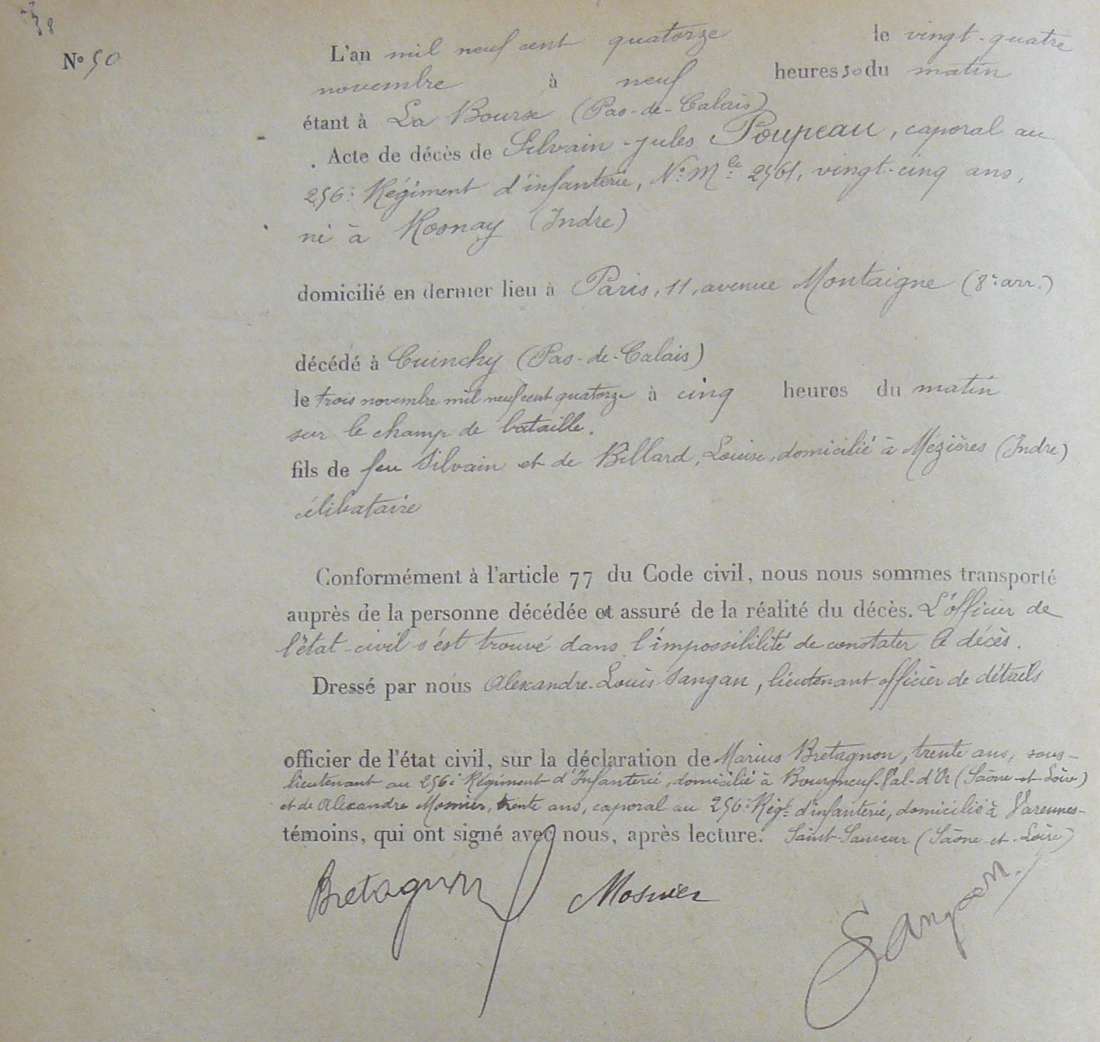 N° 50
L'an mil neuf cent quatorze le vingt-quatre
novembre à neuf heures 30 du matin
étant à La Bourse (Pas-de-Calais)
Acte de décès de Silvain-Jules Poupeau, caporal au
256e Régiment d'infanterie, N° Mle 2561, vingt-cinq ans,
né à Rosnay (Indre)
domicilié en dernier lieu à Paris, 11, avenue Montaigne (8e arr.)
décédé à Cuinchy (Pas-de-Calais)
le trois novembre mil neuf cent quatorze à cinq heures du matin
sur le champ de bataille.
fils de feu Silvain et de Billard, Louise, domicilié à Mézières (Indre)
célibataire
Conformément à l'article 77 du Code civil, nous nous sommes transporté
auprès de la personne décédée et assuré de la réalité du décès. L'officier de
l'état-civil s'est trouvé dans l'impossibilité de constater le décès.
Dressé par nous Alexandre-Louis Sangan, lieutenant officier de détails
officier de l'état civil, sur la déclaration de Marius Bretagnon, trente ans, sous-
lieutenant au 256e Régiment d'Infanterie, domicilié à Bourgneuf-Val-d'Or (Saône-et-Loire)
et de Alexandre Mosnier, trente ans, caporal au 256e Régt d'infanterie, domicilié à Varennes-
témoins, qui ont signé avec nous, après lecture. Saint-Sauveur (Saône-et-Loire)
Bretagnon Mosnier Sangan